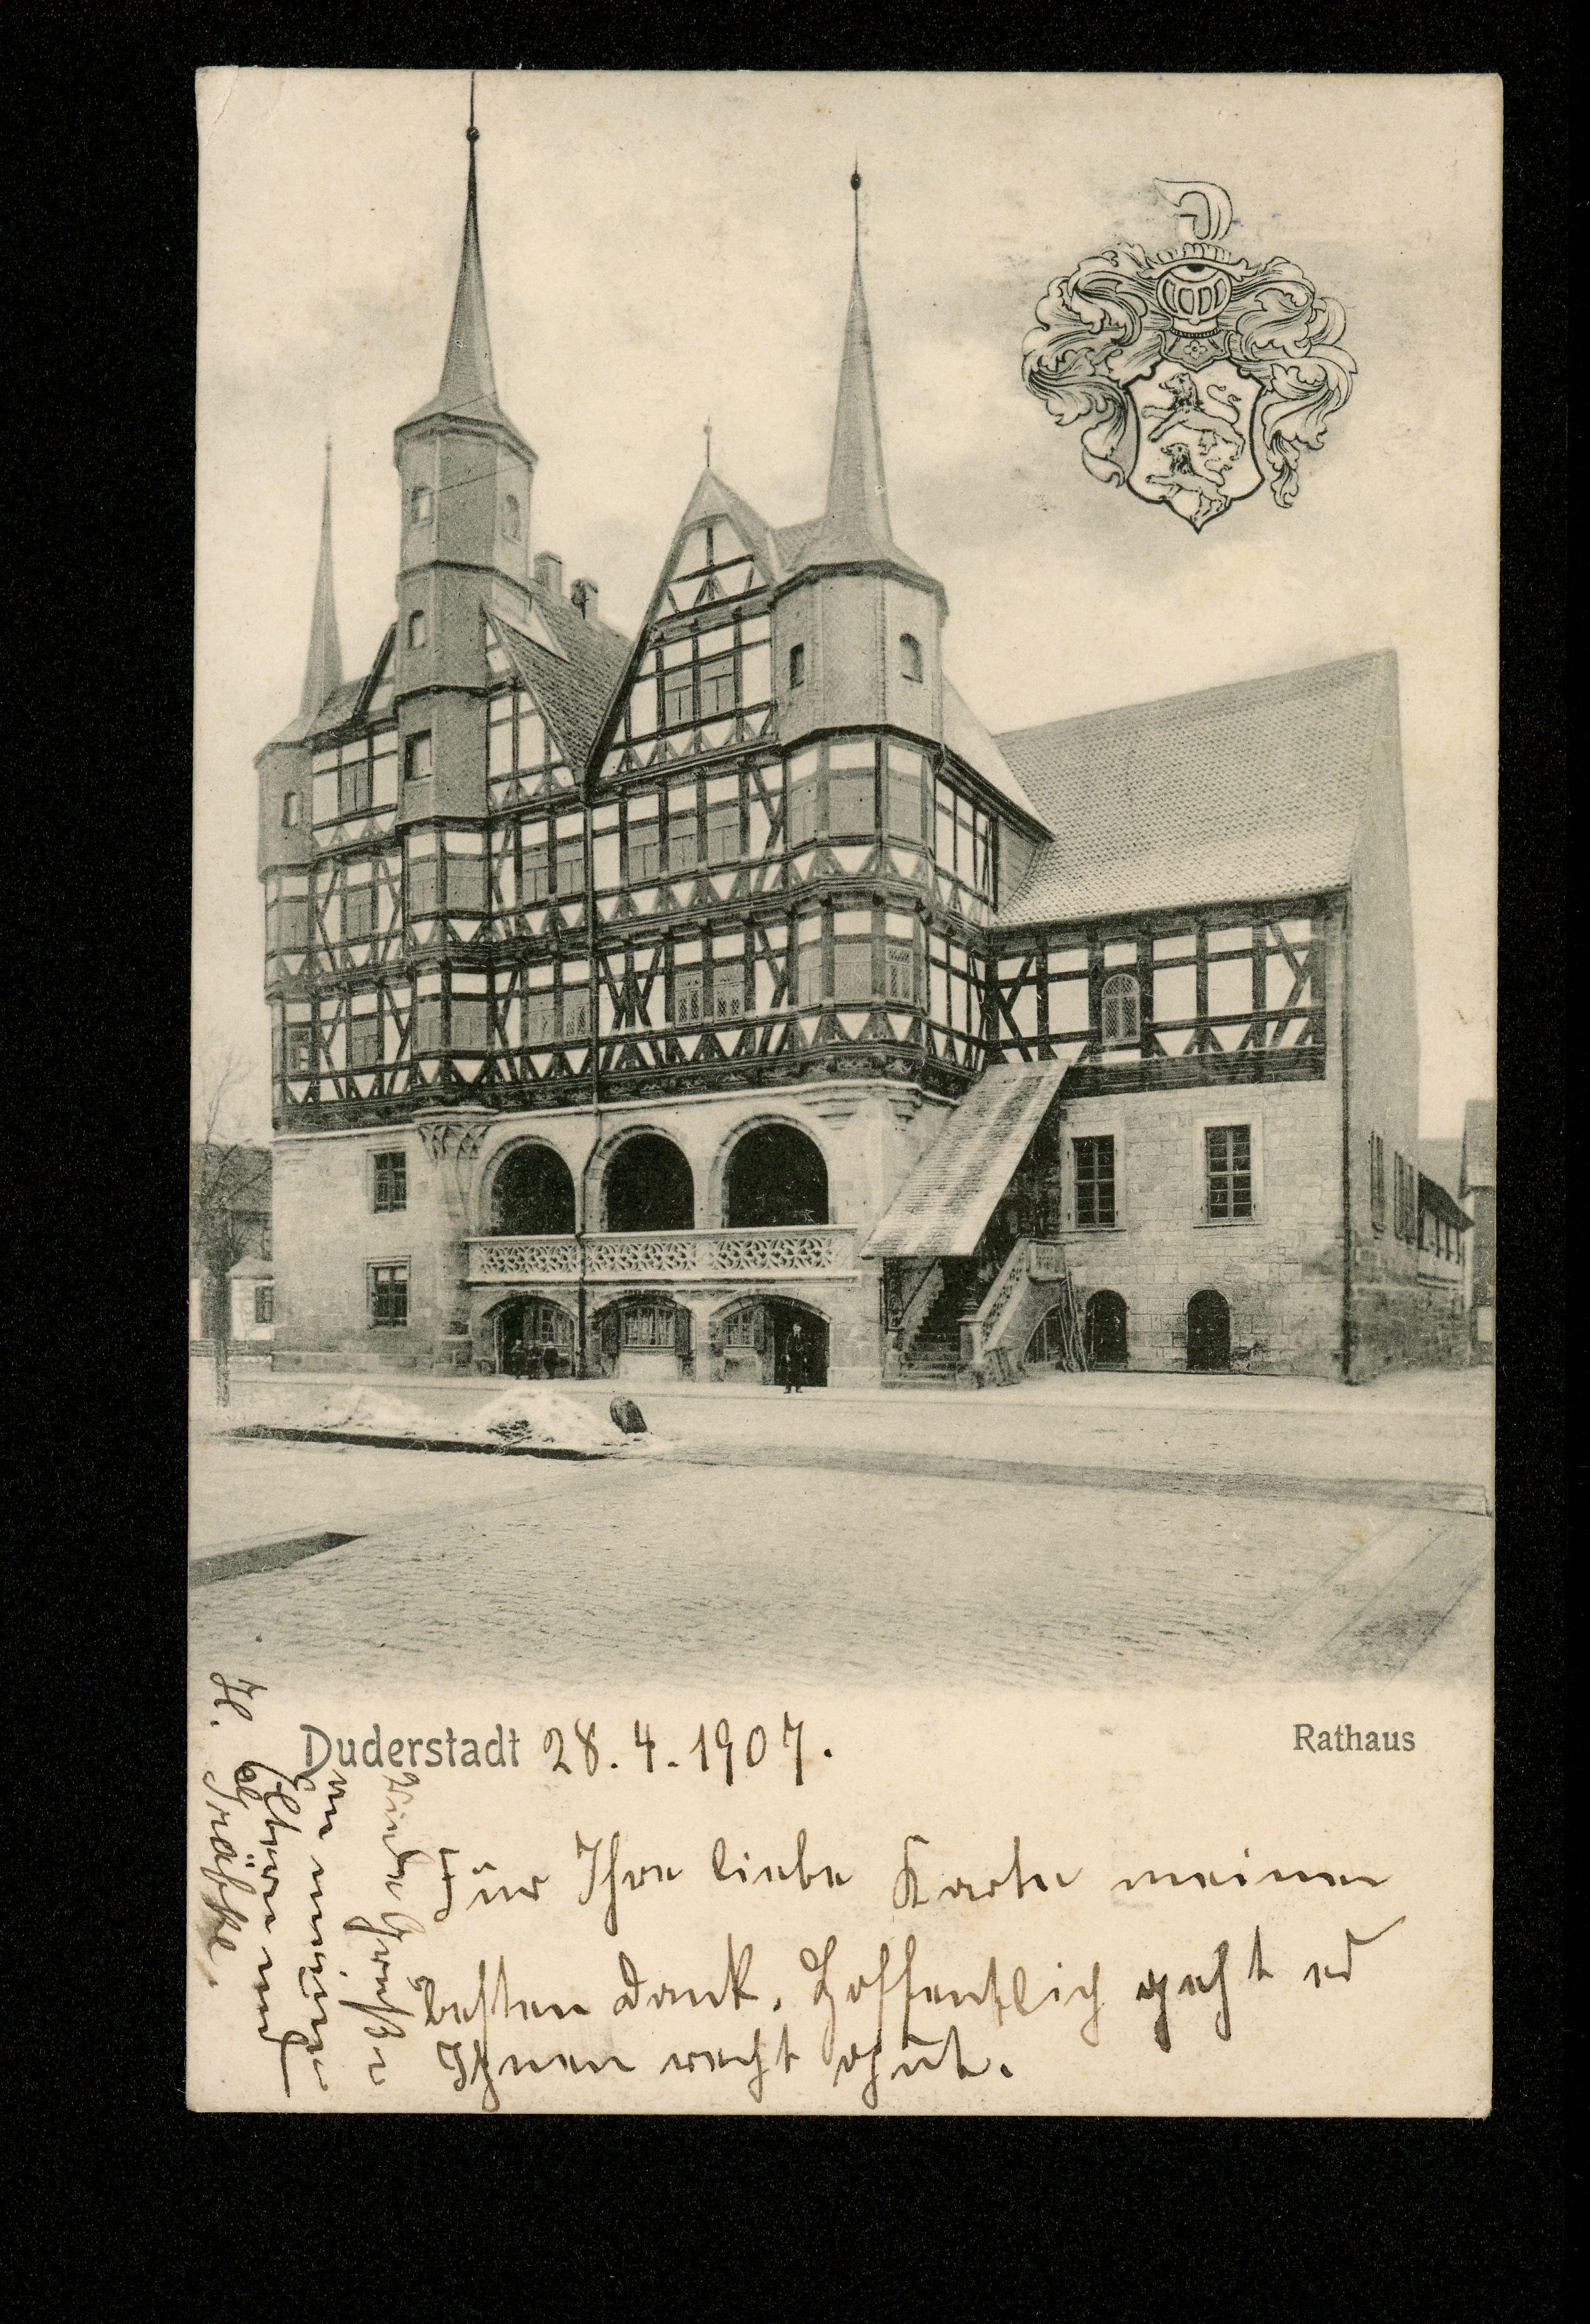 Duderstadt 28.4.1907.
Rathaus
Für Ihre liebe Karte meinen
besten Dank. Hoffentlich geht es
Ihnen recht gut.
Viele Grüße
von
und
H.